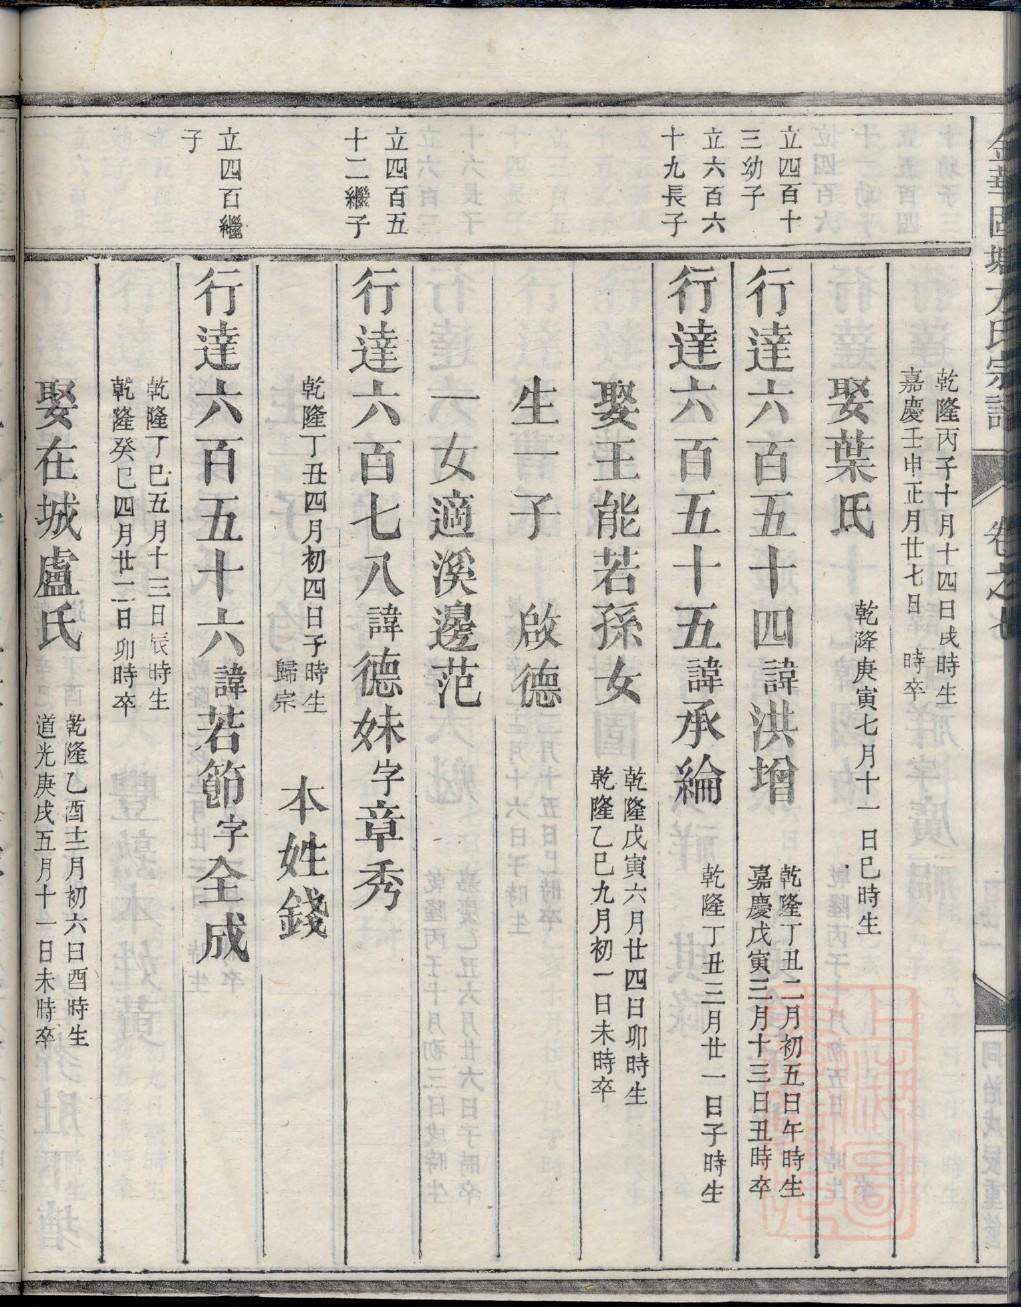 金華
方氏宗譜
卷之
同治戊辰重修
乾隆丙子十月十四日戌時生
嘉慶壬申正月廿七日 時卒
娶葉氏 乾隆庚寅七月十一日巳時生
立四百十
三幼子
行達六百五十四諱洪增 乾隆丁丑二月初五日午時生
嘉慶戊寅三月十三日丑時卒
立六百六
十九長子
行達六百五十五諱承綸 乾隆丁丑三月廿一日子時生
娶王能若孫女 乾隆戊寅六月廿四日卯時生
乾隆乙巳九月初一日未時卒
生一子 啟德
一女適溪邊范
立四百五
十二繼子
行達六百七八諱德妹字章秀
乾隆丁丑四月初四日子時生
歸宗
本姓錢
立四百繼
子
行達六百五十六諱若節字全成
乾隆丁巳五月十三日辰時生
乾隆癸巳四月廿二日卯時卒
娶在城盧氏 乾隆乙酉十二月初六日酉時生
道光庚戌五月十一日未時卒